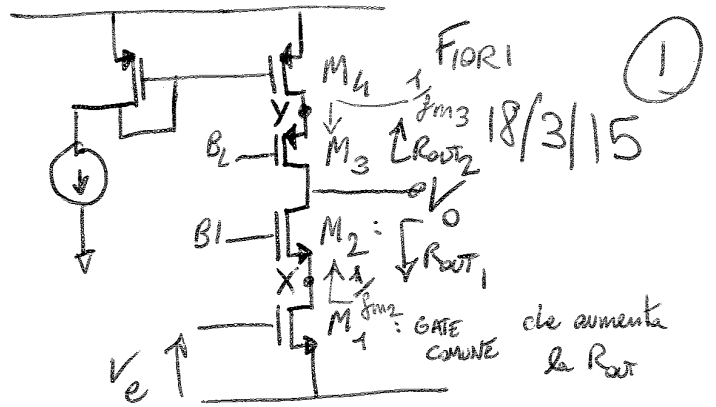 FIORI
1
18/3/15
M4
1/gm3
Y
B2
M3
ROUT2
V0
B1
M2:
ROUT1
X
1/gm2
M1: GATE COMUNE
che aumenta la ROUT
Ve